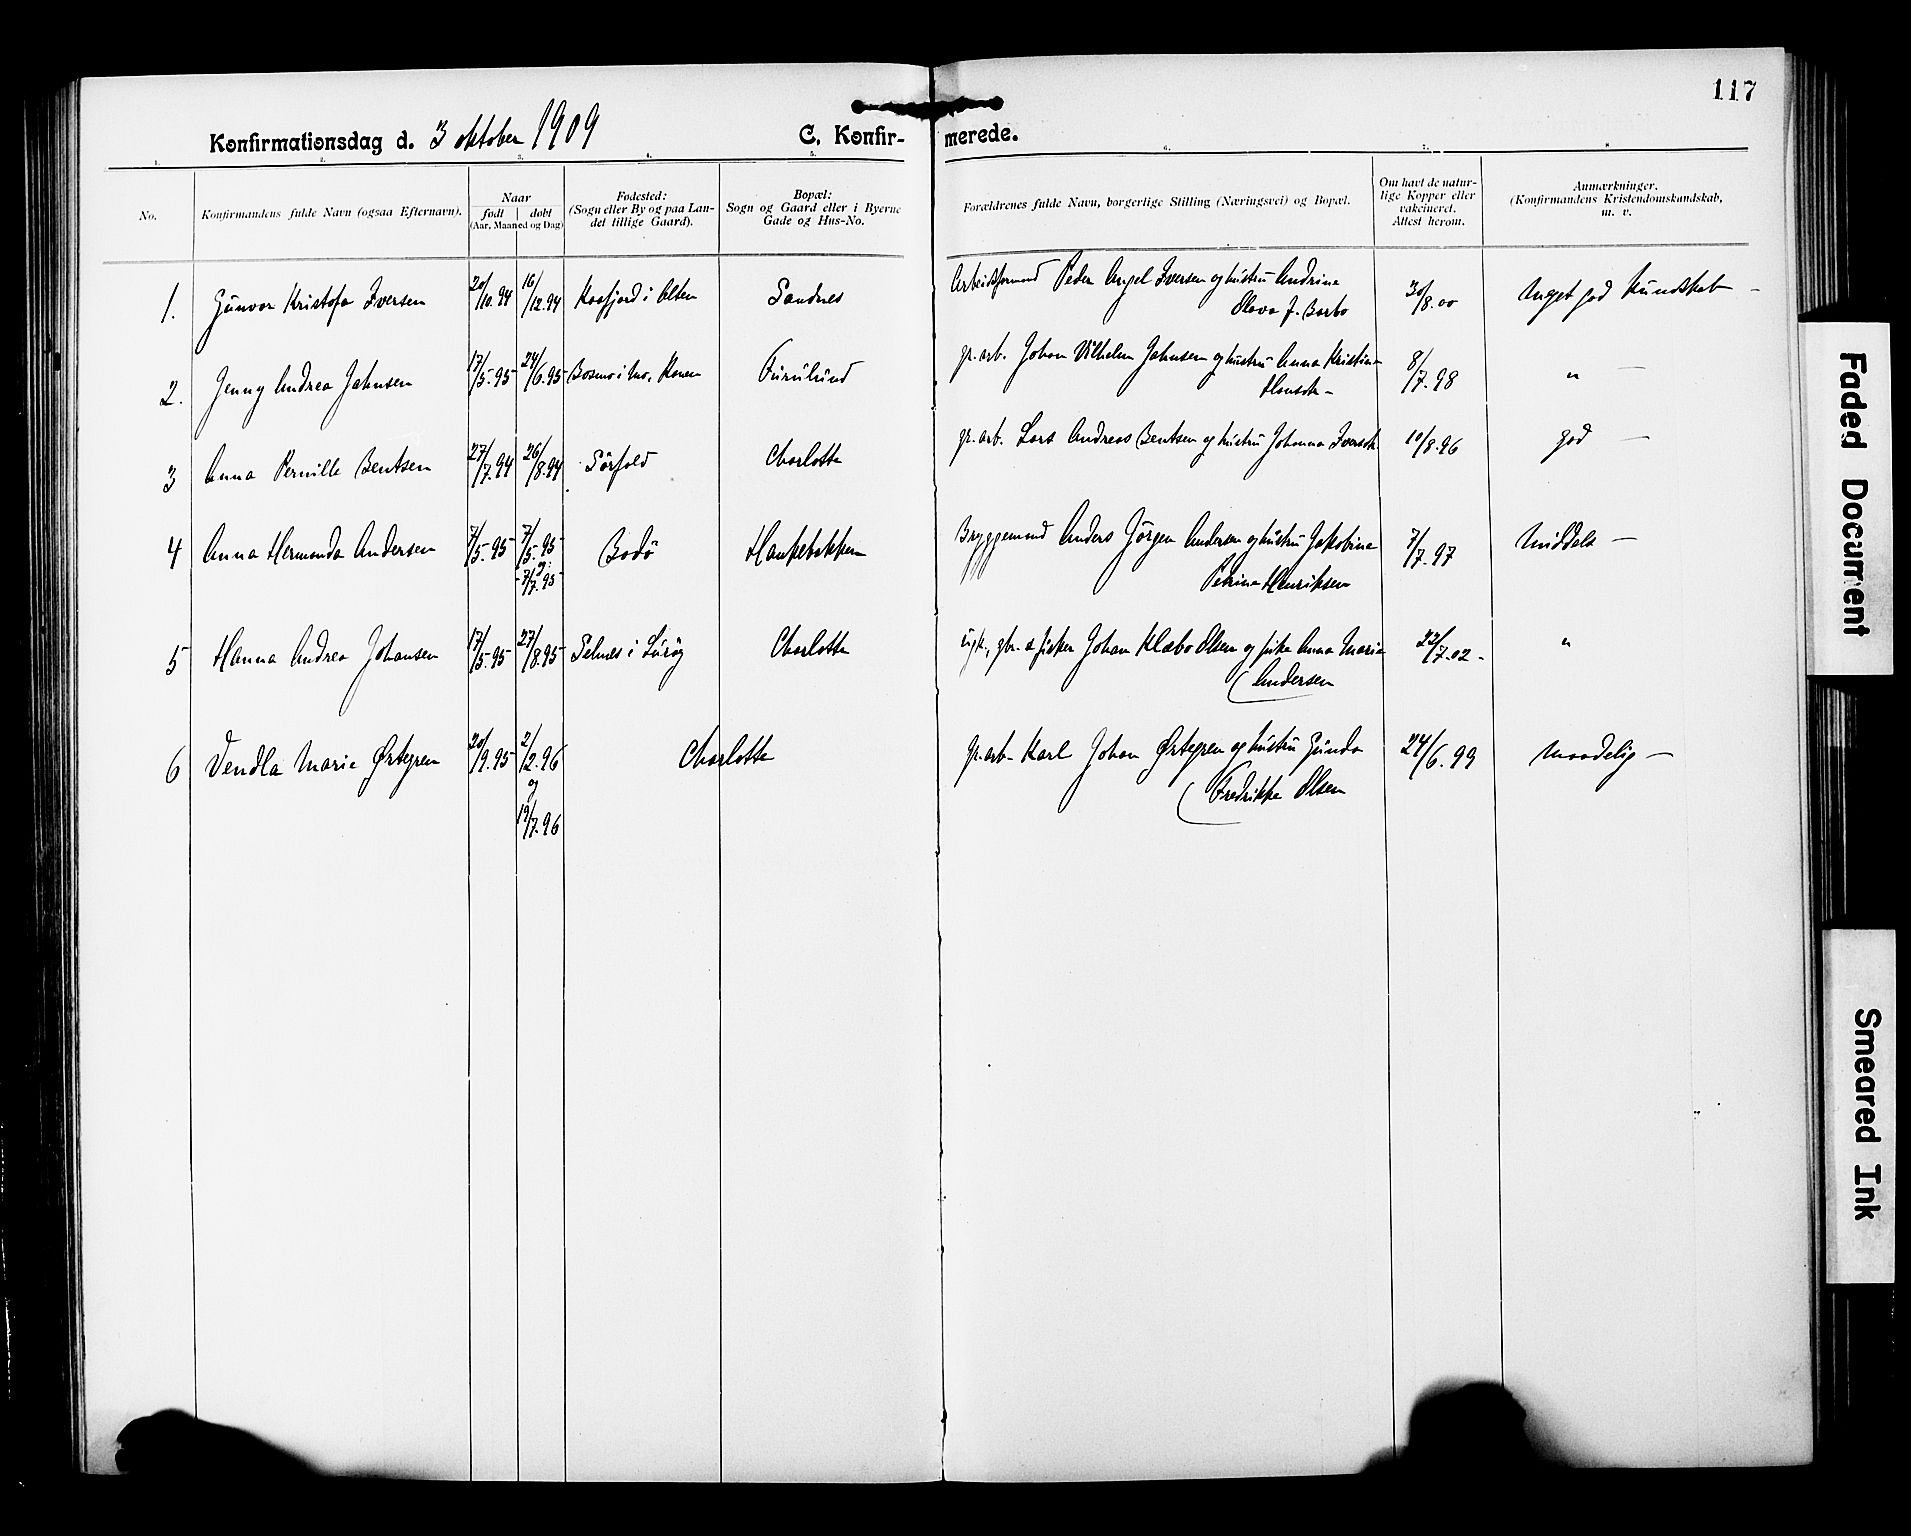 117
Konfirmationsdag d. 3 oktober 1909 C. Konfir- merede.
1. 2. 3. 4. 5. 6. 7. 8
No.
Konfirmandens fulde Navn (ogsaa Efternavn).
Naar
født døbt
(Aar, Maaned og Dag)
Fødested:
(Sogn eller By og paa Lan-
det tillige Gaard).
Bopæl:
Sogn og Gaard eller i Byerne
Gade og Hus-No.
Forældrenes fulde Navn, borgerlige Stilling (Næringsvei) og Bopæl.
Om havt de natur-
lige Kopper eller
vakcineret.
Attest herom.
Anmærkninger.
(Konfirmandens Kristendomskundskab,
m. v.
1. Gunvor Kristofa Iversen 20/10.94 16/12.94 Kaafjord i Alten Sandnes Arbeidsformand Peder Angel Iversen og hustru Andrine 30/8.00 Meget god kundskab –
Olava J. Barbo
2. Jenny Andrea Jahnsen 17/5.95 24/6.95 Bosmo i Mo, Ranen Furulund gr. arb. Johan Vilhelm Jahnsen og hustru Anna Kristine 8/7.98 " –
Hansdtr –
3 Anna Pernille Bentsen 27/7.94 26/8.94 Sørfold Charlotta gr. arb. Lars Andreas Bentsen og hustru Johanna Iversdtr. 10/8.96 god –
4 Anna Hermanda Andersen 7/5.95 7/5.95 Bodø Hankebakken Bryggemand Anders Jørgen Andersen og hustru Jakobine 7/7.97 Middels –
og
7/7.95
Petrine Henriksen
5 Hanna Andrea Johansen 17/5.95 27/8.95 Selnes i Lurøy Charlotta ugk., gbr. & fisker Johan Klæbo Olsen og pike Anna Marie 22/7.02 – "
( Andersen
6 Vendla Marie Ørtegren 20/9.95 2/2.96 Charlotta gr. arb – Karl Johan Ørtegren og hustru Gunda 24/6.99 maadelig –
og
19/7.96
( Fredrikke Olsen
Faded Document
Smeared Ink